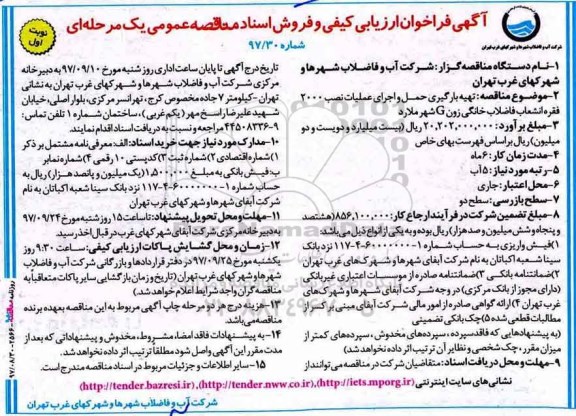 آگهی فراخوان ارزیابی کیفی و فروش اسناد مناقصه عمومی یک مرحله‌ای
شماره ۹۷/۳۰
نوبت اول
شرکت آب و فاضلاب شهرها و شهرکهای غرب تهران
۱-نام دستگاه مناقصه گزار: شرکت آب و فاضلاب شهرها و
شهرکهای غرب تهران
۲-موضوع مناقصه: تهیه بارگیری حمل و اجرای عملیات نصب ۲۰۰۰
فقره انشعاب فاضلاب خانگی زون G شهر ملارد
۳-مبلغ برآورد: ۲۰,۲۰۲,۰۰۰,۰۰۰ ریال (بیست میلیارد و دویست و دو
میلیون) ریال بر اساس فهرست بهای خاص
۴-مدت زمان کار: ۶ ماه
۵-رتبه مورد نیاز: ۵ آب
۶-محل اعتبار: جاری
۷-سطح بازرسی: سطح دو
۸-مبلغ تضمین شرکت در فرآیند ارجاع کار: ۸۵۶,۱۰۰,۰۰۰ (هشتصد
و پنجاه و شش میلیون و صد هزار) ریال بوده و به یکی از انواع ذیل می‌باشد
۱) فیش واریزی به حساب شماره ۱-۶۰۰۰۰۰۰-۴-۱۱۷ نزد بانک
سینا شعبه اکباتان به نام شرکت آبفای شهرها و شهرکهای غرب تهران
۲) ضمانتنامه بانکی ۳) ضمانتنامه صادره از موسسات اعتباری غیربانکی
(دارای مجوز از بانک مرکزی) در وجه شرکت آبفا شهرها و شهرکهای
غرب تهران ۴) ارائه گواهی صادره از امور مالی شرکت آبفای مبنی بر کسر از
مطالبات قطعی شده ۵) چک بانکی تضمینی
(به پیشنهادهایی که فاقد سپرده، سپرده‌های مخدوش، سپرده‌های کمتر از
میزان مقرر، چک شخصی و نظایر آن ترتیب اثر داده نخواهد شد)
۹-مهلت و محل دریافت اسناد: متقاضیان شرکت در مناقصه می‌توانند از
تاریخ درج آگهی تا پایان ساعت اداری روز شنبه مورخ ۹۷/۰۹/۱۰ به دبیرخانه
مرکزی شرکت آب و فاضلاب شهرها و شهرکهای غرب تهران به نشانی
تهران -کیلومتر ۷ جاده مخصوص کرج، تهرانسر مرکزی، بلوار اصلی، خیابان
شهید علیرضا راسخ مهر (یکم غربی)، ساختمان شماره ۱ تلفن تماس:
۹-۴۴۵۰۸۳۳۶ مراجعه و نسبت به دریافت اسناد اقدام نمایند.
۱۰-مدارک مورد نیاز جهت خرید اسناد: الف: معرفی نامه مشتمل بر ذکر
۱) شماره اقتصادی ۲) شماره ثبت ۳) کدپستی ۱۰ رقمی ۴) شماره نمابر
ب: فیش بانکی به مبلغ ۱,۵۰۰,۰۰۰ (یک میلیون و پانصد هزار) ریال به
حساب شماره ۱-۶۰۰۰۰۰۰-۴-۱۱۷ نزد بانک سینا شعبه اکباتان به نام
شرکت آبفای شهرها و شهرکهای غرب تهران
۱۱-مهلت و محل تحویل پیشنهاد: تا ساعت ۱۵ روز شنبه مورخ ۹۷/۰۹/۲۴
به دبیرخانه مرکزی شرکت آبفای شهرکهای غرب در قبال اخذ رسید.
۱۲-زمان و محل گشایش پاکات ارزیابی کیفی: ساعت ۹:۳۰ روز
یکشنبه مورخ ۹۷/۰۹/۲۵ در دفتر قراردادها و بازرگانی شرکت آب و فاضلاب
شهرها و شهرکهای غرب تهران (تاریخ و زمان بازگشایی سایر پاکات متعاقبا به
مناقصه گران واجد شرایط اعلام خواهد شد.)
۱۳-هزینه درج هر دو مرحله چاپ آگهی مربوط به این مناقصه بعهده برنده
مناقصه می‌باشد.
۱۴-به پیشنهادات فاقد امضاء، مشروط، مخدوش و پیشنهاداتی که بعد از
مدت مقرر این آگهی واصل شود مطلقاً ترتیب اثر داده نخواهد شد.
۱۵-سایر اطلاعات و جزئیات مربوطه در اسناد مناقصه مندرج است.
نشانی های سایت اینترنتی (http://iets.mporg.ir)، (http://tender.nww.co.ir)، (http://tender.bazresi.ir)
شرکت آب و فاضلاب شهرها و شهرکهای غرب تهران